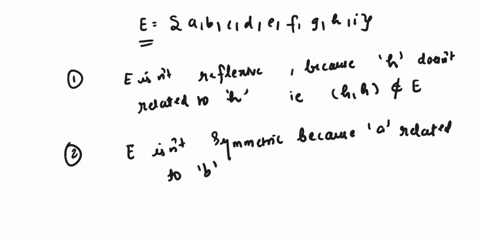 E = { a, b, c, d, e, f, g, h, i }
① E isn't reflexive, because 'h' doesn't
related to 'h' ie (h, h) ∉ E
② E isn't symmetric because 'a' related
to 'b'